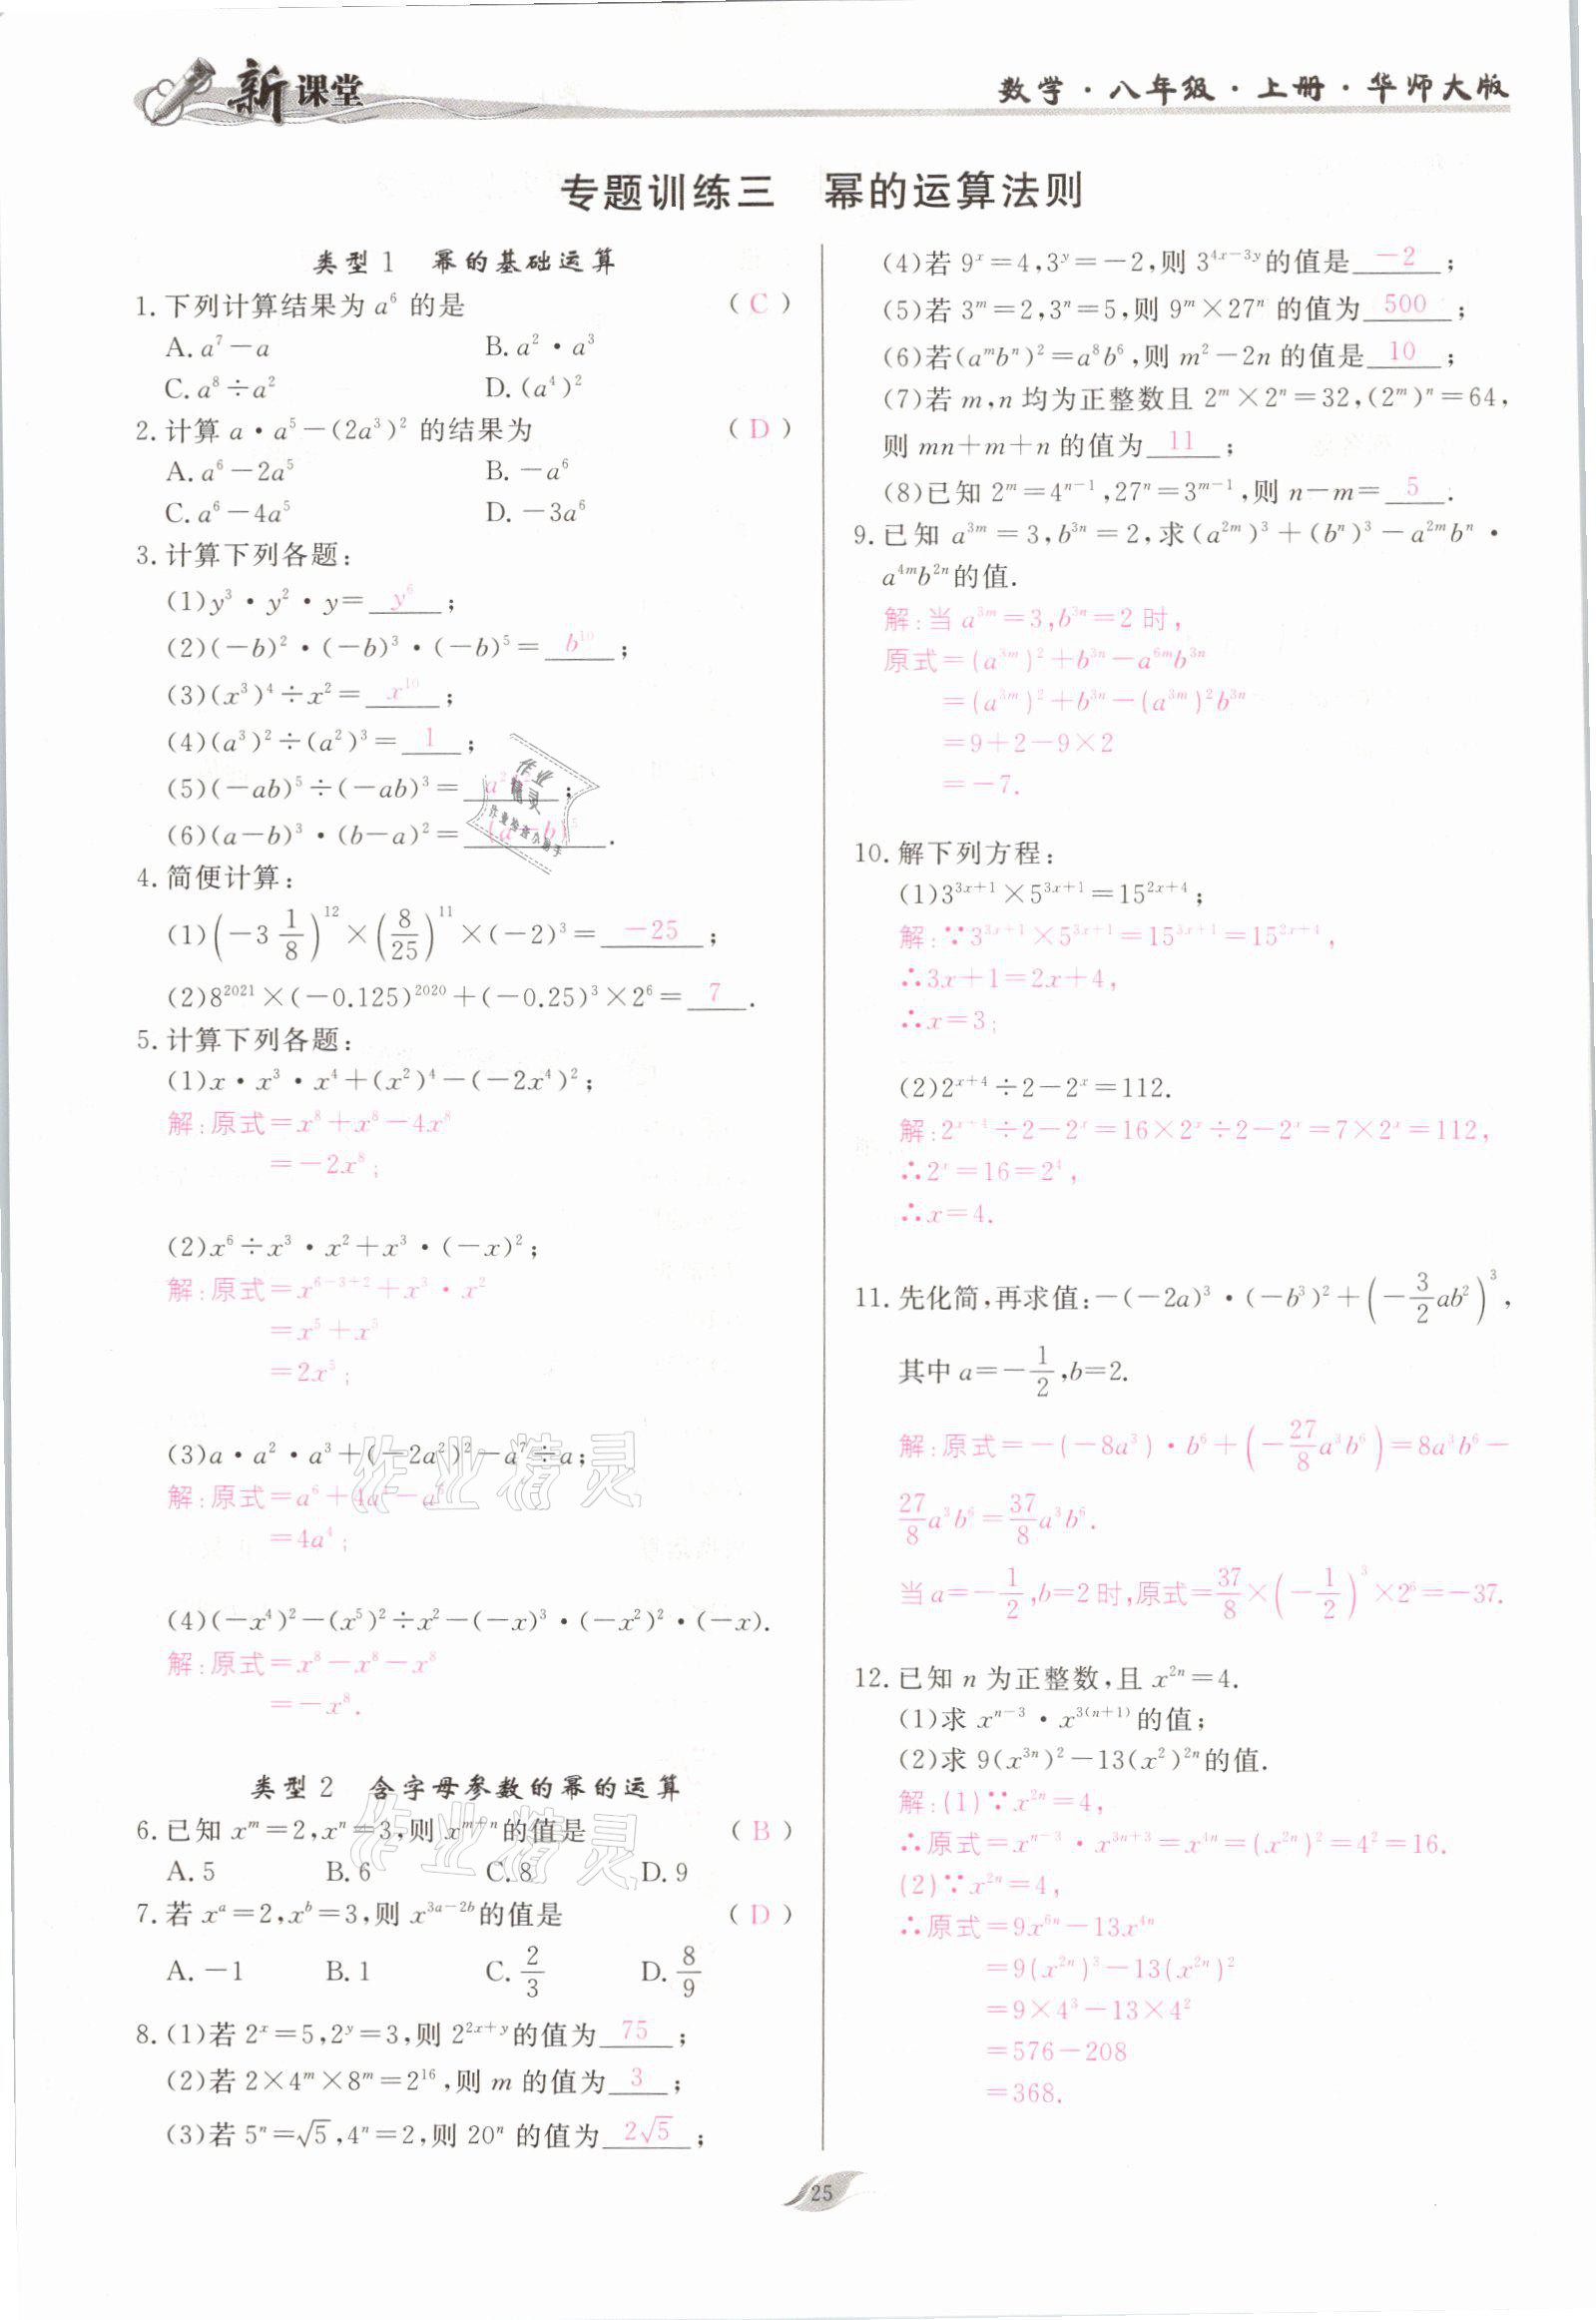 新课堂
数学·八年级·上册·华师大版
专题训练三 幂的运算法则
类型1 幂的基础运算
1. 下列计算结果为 a⁶ 的是 (C)
A. a⁷－a B. a²·a³
C. a⁸÷a² D. (a⁴)²
2. 计算 a·a⁵－(2a³)² 的结果为 (D)
A. a⁶－2a⁵ B. －a⁶
C. a⁶－4a⁵ D. －3a⁶
3. 计算下列各题：
(1)y³·y²·y＝y⁶；
(2)(－b)²·(－b)³·(－b)⁵＝b¹⁰；
(3)(x³)⁴÷x²＝x¹⁰；
(4)(a³)²÷(a²)³＝1；
(5)(－ab)⁵÷(－ab)³＝a²；
(6)(a－b)³·(b－a)²＝(a－b)⁵.
作业
精灵
4. 简便计算：
(1)(－3 1/8)¹²×(8/25)¹¹×(－2)³＝－25；
(2)8²⁰²¹×(－0.125)²⁰²⁰＋(－0.25)³×2⁶＝7.
5. 计算下列各题：
(1)x·x³·x⁴＋(x²)⁴－(－2x⁴)²；
解：原式＝x⁸＋x⁸－4x⁸
＝－2x⁸；
(2)x⁶÷x³·x²＋x³·(－x)²；
解：原式＝x⁶⁻³⁺²＋x³·x²
＝x⁵＋x⁵
＝2x⁵；
(3)a·a²·a³＋(－2a²)²－a⁷÷a；
解：原式＝a⁶＋4a⁴－a⁶
＝4a⁴；
作业精灵
(4)(－x⁴)²－(x⁵)²÷x²－(－x)³·(－x²)²·(－x).
解：原式＝x⁸－x⁸－x⁸
＝－x⁸.
类型2 含字母参数的幂的运算
6. 已知 xᵐ＝2,xⁿ＝3,则 xᵐ⁺ⁿ的值是 (B)
A. 5 B. 6 C. 8 D. 9
作业精灵
7. 若 xᵃ＝2,xᵇ＝3,则 x³ᵃ⁻²ᵇ的值是 (D)
A. －1 B. 1 C. 2/3 D. 8/9
8. (1)若 2ˣ＝5,2ʸ＝3,则 2²ˣ⁺ʸ的值为75；
(2)若 2×4ᵐ×8ᵐ＝2¹⁶,则 m 的值为3；
(3)若 5ⁿ＝√5,4ⁿ＝2,则 20ⁿ 的值为2√5；
(4)若 9ˣ＝4,3ʸ＝－2,则 3⁴ˣ⁻³ʸ的值是－2；
(5)若 3ᵐ＝2,3ⁿ＝5,则 9ᵐ×27ⁿ 的值为500；
(6)若(aᵐbⁿ)²＝a⁸b⁶,则 m²－2n 的值是10；
(7)若 m,n 均为正整数且 2ᵐ×2ⁿ＝32,(2ᵐ)ⁿ＝64,
则 mn＋m＋n 的值为11；
(8)已知 2ᵐ＝4ⁿ⁻¹,27ⁿ＝3ᵐ⁻¹,则 n－m＝5.
9. 已知 a³ᵐ＝3,b³ⁿ＝2,求(a²ᵐ)³＋(bⁿ)³－a²ᵐbⁿ·
a⁴ᵐb²ⁿ的值.
解：当 a³ᵐ＝3,b³ⁿ＝2 时,
原式＝(a³ᵐ)²＋b³ⁿ－a⁶ᵐb³ⁿ
＝(a³ᵐ)²＋b³ⁿ－(a³ᵐ)²b³ⁿ
＝9＋2－9×2
＝－7.
10. 解下列方程：
(1)3³ˣ⁺¹×5³ˣ⁺¹＝15²ˣ⁺⁴；
解：∵3³ˣ⁺¹×5³ˣ⁺¹＝15³ˣ⁺¹＝15²ˣ⁺⁴,
∴3x＋1＝2x＋4,
∴x＝3；
(2)2ˣ⁺⁴÷2－2ˣ＝112.
解：2ˣ⁺⁴÷2－2ˣ＝16×2ˣ÷2－2ˣ＝7×2ˣ＝112,
∴2ˣ＝16＝2⁴,
∴x＝4.
11. 先化简,再求值：－(－2a)³·(－b³)²＋(－3/2 ab²)³,
其中 a＝－1/2,b＝2.
解：原式＝－(－8a³)·b⁶＋(－27/8 a³b⁶)＝8a³b⁶－
27/8 a³b⁶＝37/8 a³b⁶.
当 a＝－1/2,b＝2 时,原式＝37/8×(－1/2)³×2⁶＝－37.
12. 已知 n 为正整数,且 x²ⁿ＝4.
(1)求 xⁿ⁻³·x³⁽ⁿ⁺¹⁾的值；
(2)求 9(x³ⁿ)²－13(x²)²ⁿ的值.
解：(1)∵x²ⁿ＝4,
∴原式＝xⁿ⁻³·x³ⁿ⁺³＝x⁴ⁿ＝(x²ⁿ)²＝4²＝16.
(2)∵x²ⁿ＝4,
∴原式＝9x⁶ⁿ－13x⁴ⁿ
＝9(x²ⁿ)³－13(x²ⁿ)²
＝9×4³－13×4²
＝576－208
＝368.
25